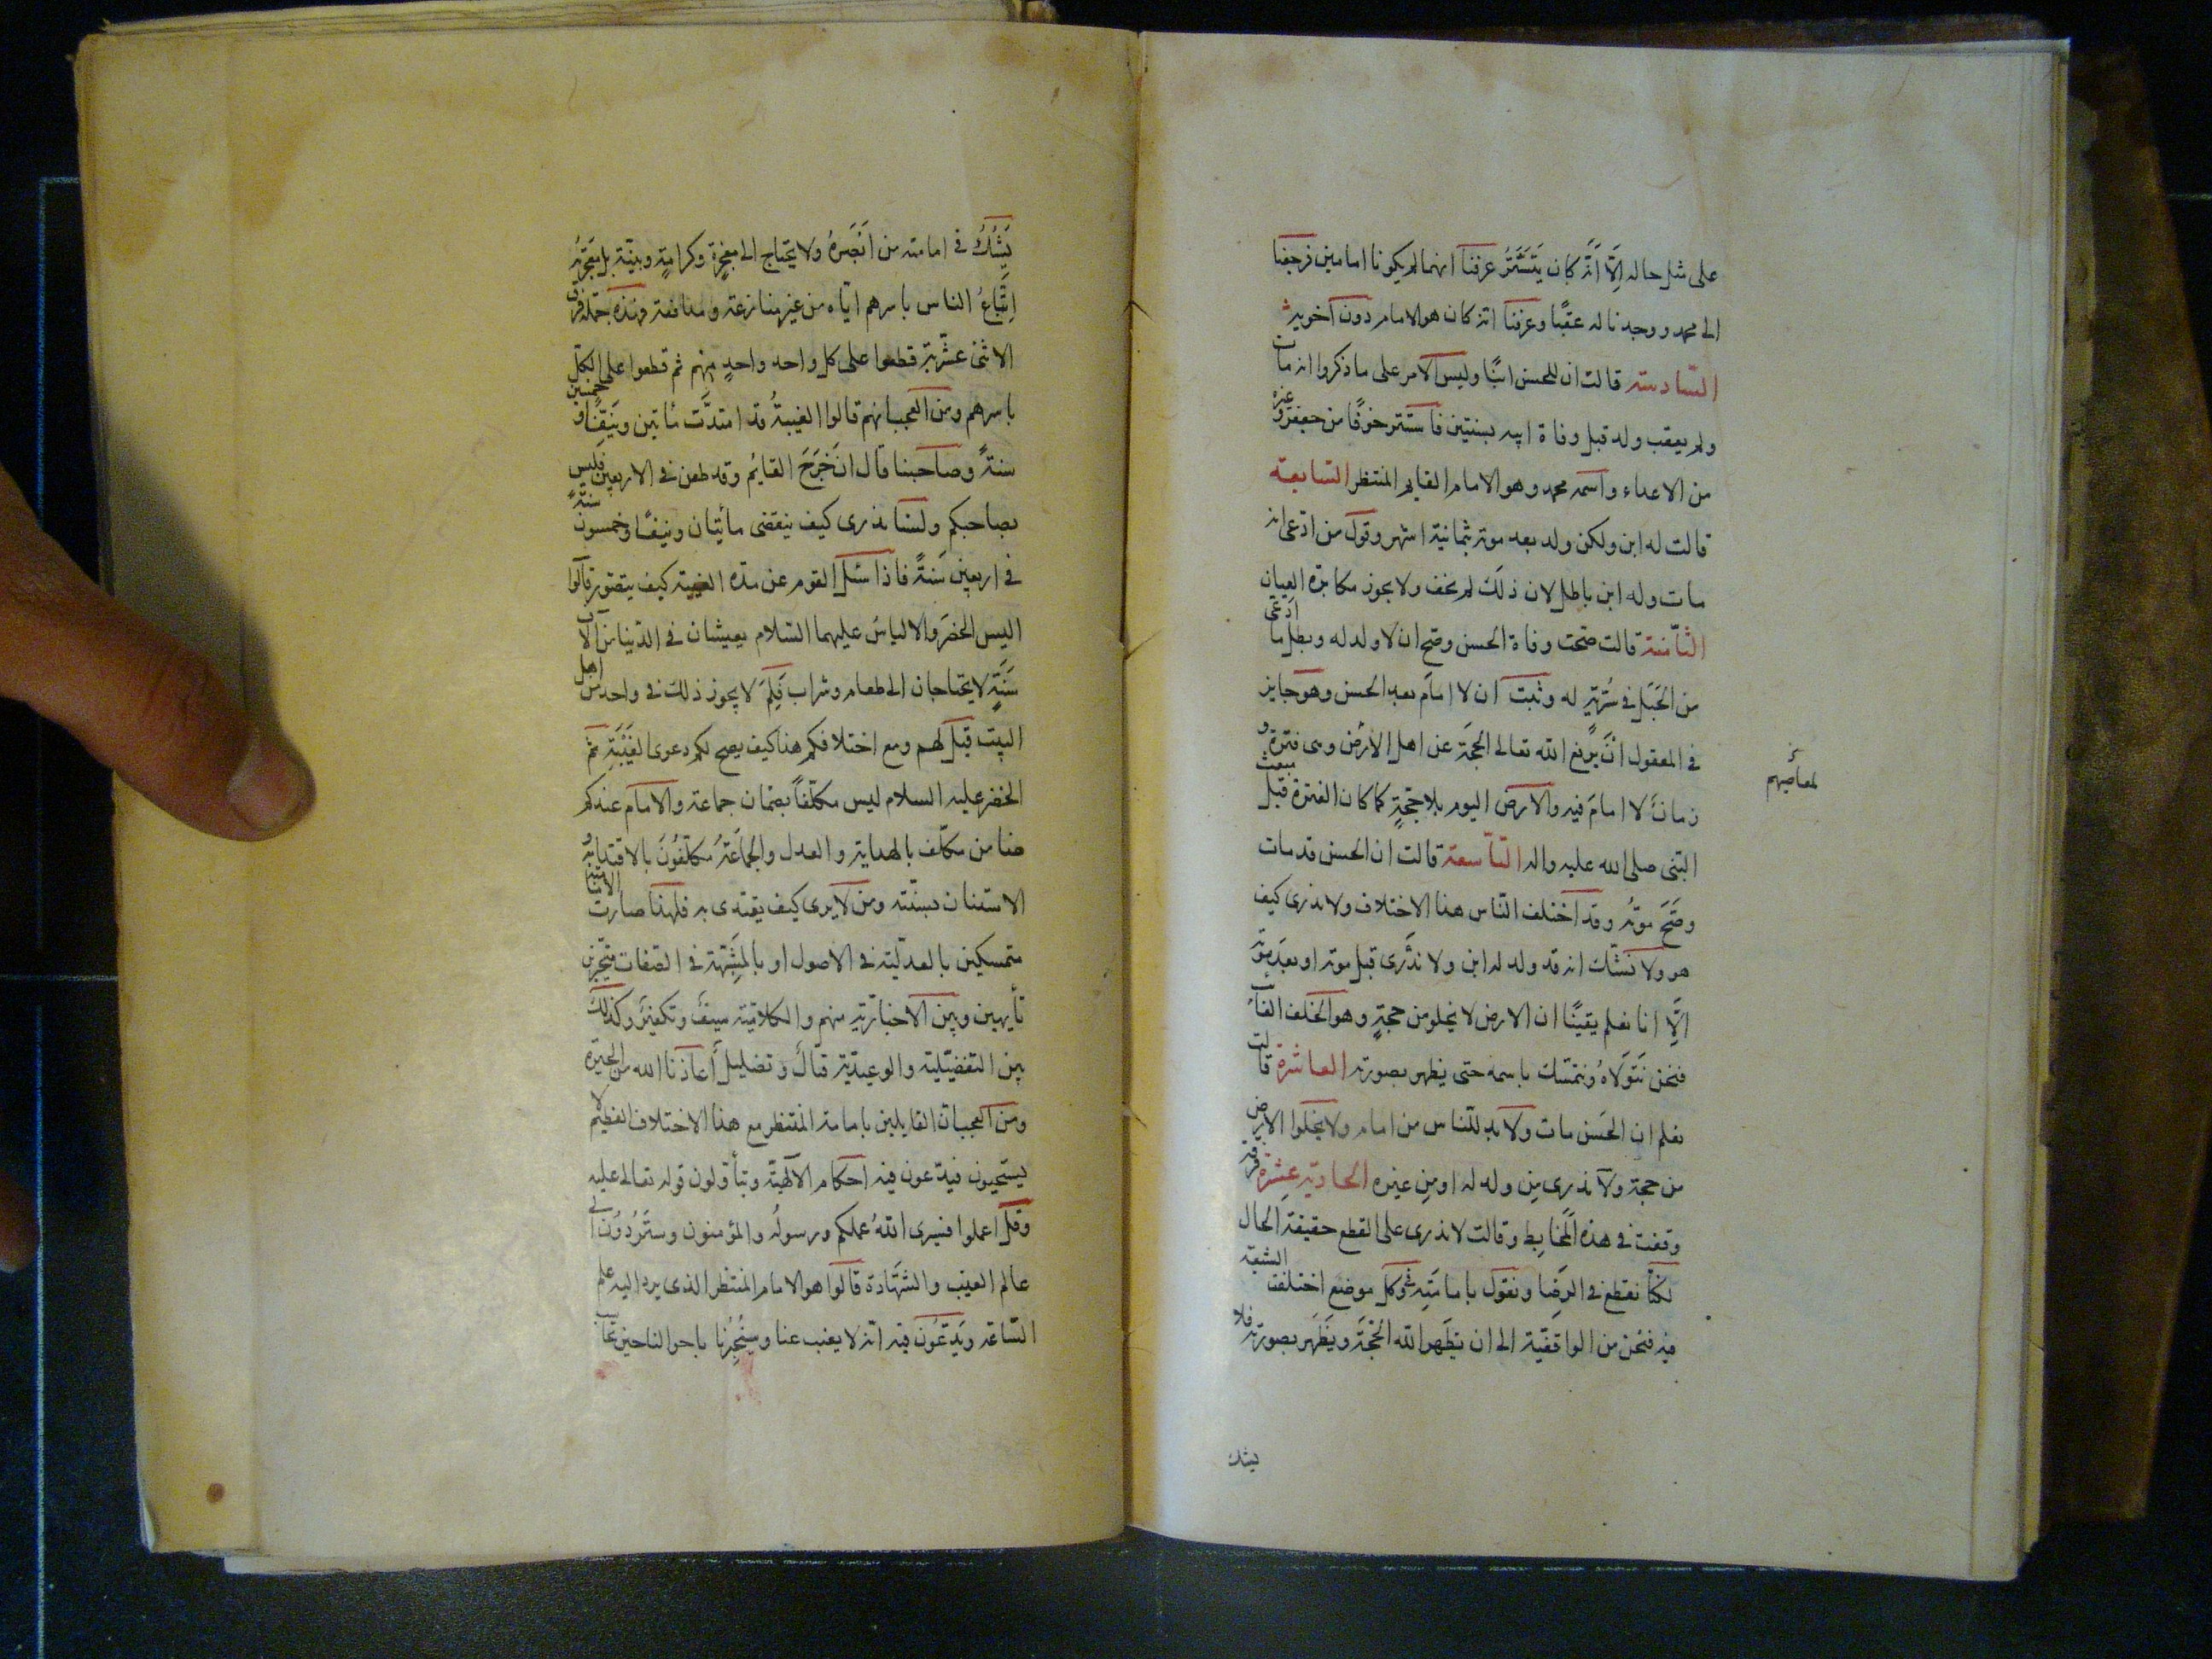 على مثل حاله الّا انّه كان يَتَسَتَّرُ عرفنا انهما لم يكونا امامين فرجعنا
الى محمد ووجدنا له عقبًا وعرفنا انه كان هو الامام دون اخويه
السّادسة قالت ان للحسن ابنًا وليس الامر على ما ذكروا انه مات
ولم يعقب ولد قبل وفاة ابيه بسنتين فاستتر خوفًا من جعفر وغيره
من الاعداء واسمه محمد وهو الامام القايم المنتظر السّابعة
قالت له ابن ولكن ولد بعد موته بثمانية اشهر وقول من ادّعى انه
مات وله ابن باطل لان ذلك لم يخف ولا يجوز مكابرة العيان
الثّامنة قالت صحّت وفاة الحسن وصحّ ان لا ولد له وبطل ما ادّعى
من الحَبَل في سُرّيّةٍ له وثبت ان لا امام بعد الحسن وهو جايز
في المعقول انْ يرفع الله تعالى الحجّة عن اهل الأرض وهى فترة و
لمعاصيهم
زمانٌ لا امامَ فيه والارض اليوم بلا حجّةٍ كما كان الفترة قبل مبعث
النّبى صلى الله عليه واله التّاسعة قالت ان الحسن قد مات
وصَحَّ موتُه وقد اختلف النّاس هذا الاختلاف ولا ندرى كيف
هو ولا نشك انه قد ولد له ابن ولا نَدْرى قبل موته او بعد موته
الّا انا نعلم يقينًا ان الارض لا يخلو من حجةٍ وهو الخلف الغائب
فنحن نَتَولّاهُ ونتمسّك باسمه حتى يظهر بصورته العاشرة قالت
نعلم ان الحَسَن مات ولا بد للنّاس من امام ولا يخلوا الارض
من حجة ولا ندرى مِن ولده او مِن غيره الحادية عشرة فرقة
وقفت في هذه المخابط وقالت لا ندرى على القطع حقيقة الحال
لكنّا نقطع في الرّضا ونقول بامامَتِه وفى كل موضع اختلفت الشيعة
فيه فنحن من الواقفيّة الى ان يظهر الله الحُجّة ويَظْهَر بصورته فلا
يشك
يَشُكُّ في امامته من اَبْصَرَهُ ولا يحتاج الى معجزةٍ وكرامةٍ وبيّنة بل معجزتُه
اتِّباعُ الناس باسرهم ايّاه من غير منازعة ومدافعة فهذه جملة فرق
الاثنى عشريّة قطعوا على كل واحد واحدٍ منهم ثم قطعوا على الكلّ
باسرهم ومن العجب انهم قالوا الغيبةُ قد امتدَّت مائتين ونَيّفًا و خمسين
سنةً وصاحبنا قال ان خَرَجَ القايم وقد طعن في الاربعين فليس
بصاحبكم ولسنا ندرى كيف ينقضى مائتان ونيفًا وخمسون سنةً
في اربعين سَنةً فاذا سُئل القوم عن مدة الغيبة كيف يتصور قالوا
اليس الخضر والالياس عليهما السّلام يعيشان في الدّنيا من آلاف
سَنَةٍ لا يحتاجان الى طعام وشراب فَلِمَ لا يجوز ذلك في واحد من اهل
البيت قيل لهم ومع اختلافكم هذا كيف يصح لكم دعوى الغَيْبَةِ ثم
الخضر عليه السلام ليس مكلّفًا بضمان جماعة والامام عندكم
ضامن مكلّف بالهداية والعدل والجماعةُ مكلّفُونَ بالاقتداء به و
الاستنان بسنّته ومن لا يرى كيف يقتدى به فلهذا صارت الاماميّة
متمسكين بالعدليّة في الاصول او بالمشبّهة في الصفات متحيّرين
تأيهين وبين الاخباريّة منهم والكلاميّة سيفٌ وتكفيرٌ وكذلك
بين التفضيليّة والوعيديّة قتالٌ وتضليلٌ أعاذنا الله من الحيرة
ومن العجب ان القايلين بامامة المنتظر مع هذا الاختلاف العظيم لا
يستحيون فيدّعون فيه احكام الالهيّة ويتأوّلون قوله تعالى عليه
وقل اعملوا فسيرى اللهُ عملكم ورسولُه والمؤمنون وستُردُّون الى
عالم الغيب والشهادة قالوا هو الامام المنتظر الذى يرد اليه علم
السّاعة ويدّعُون فيه انّه لا يغيب عنا وسيُخبرُنا باحوالنا حين